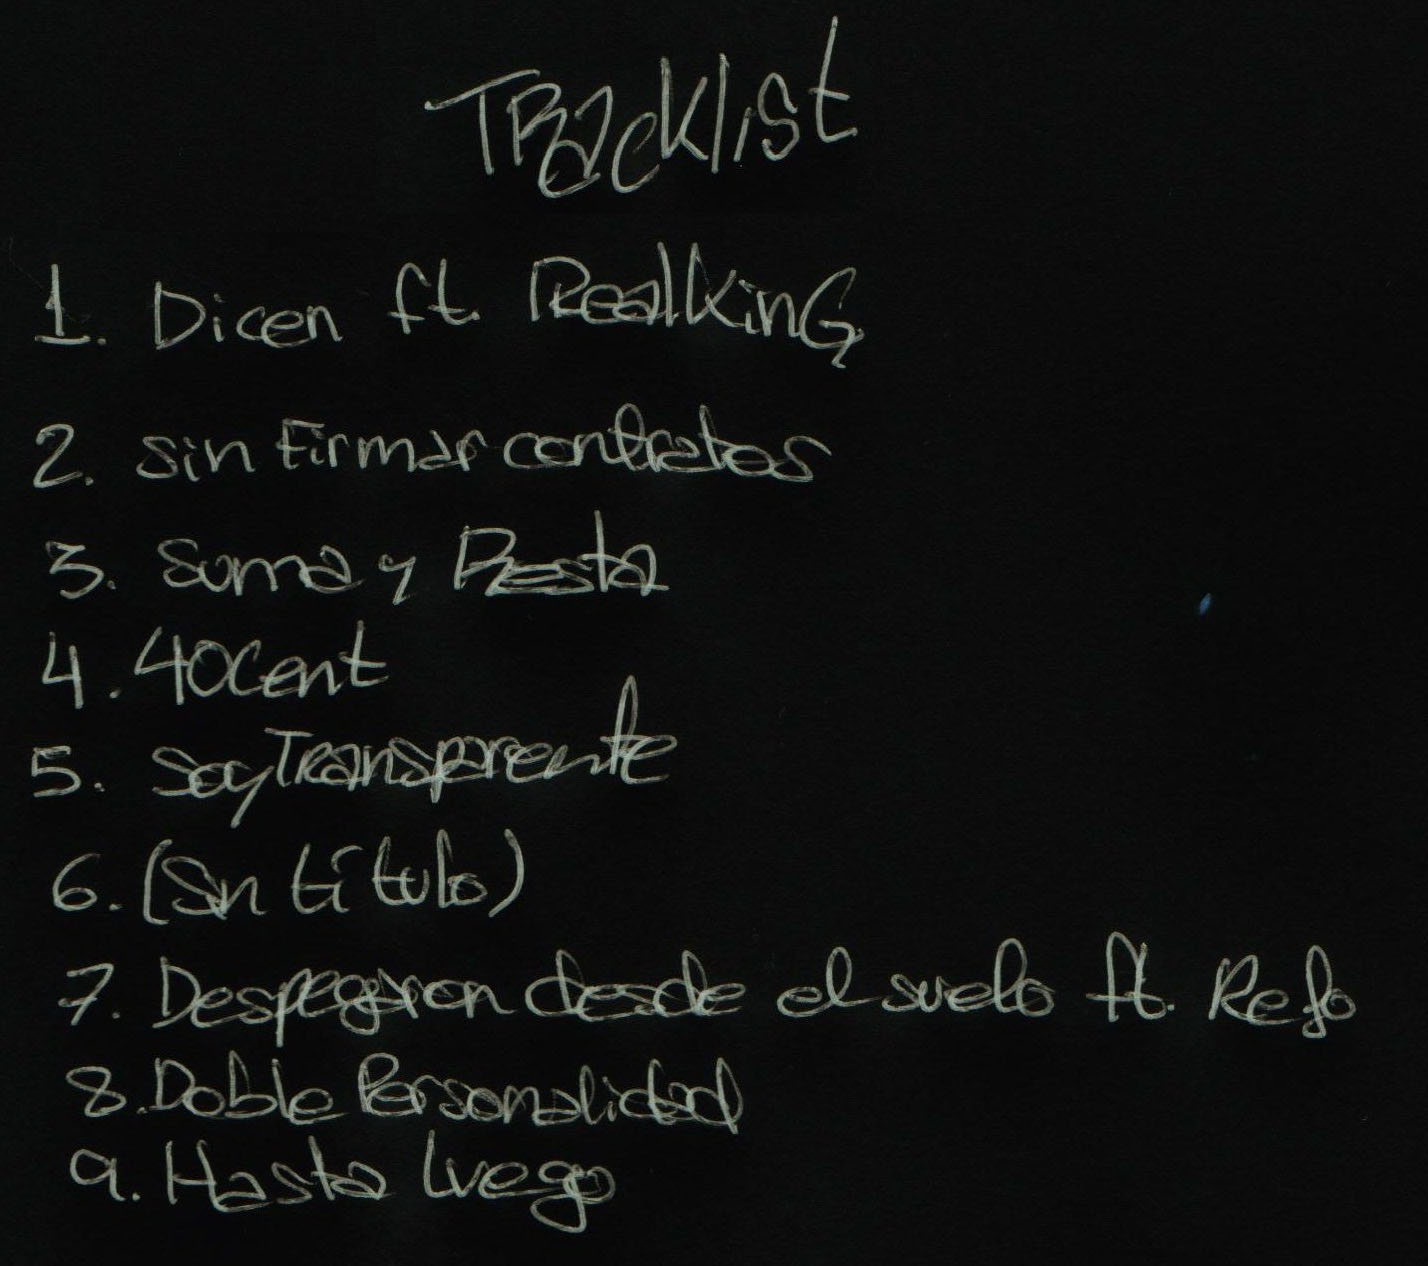 Tracklist
1. Dicen ft. RealKinG
2. sin Firmar contratos
3. Suma y Resta
4. 40Cent
5. Soy Transparente
6. (Sin título)
7. Despegaron desde el suelo ft. Refo
8. Doble Personalidad
9. Hasta luego